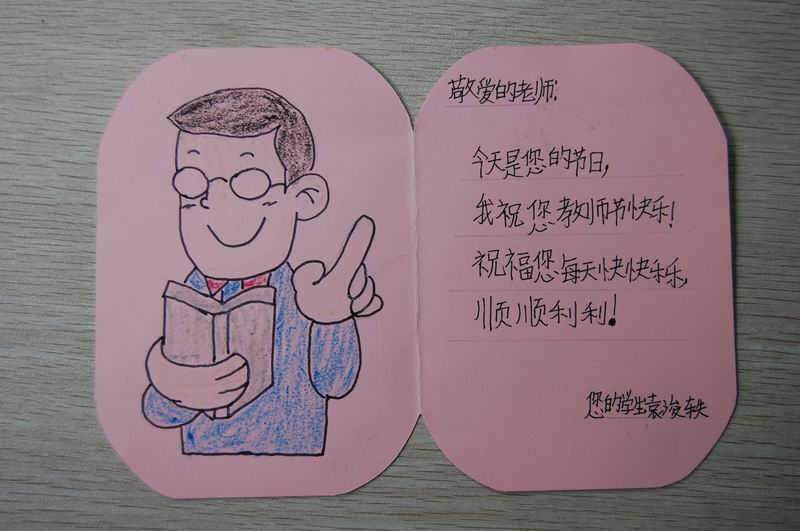 敬爱的老师:
今天是您的节日,
我祝您教师节快乐!
祝福您每天快快乐乐,
顺顺利利!
您的学生袁浚轶